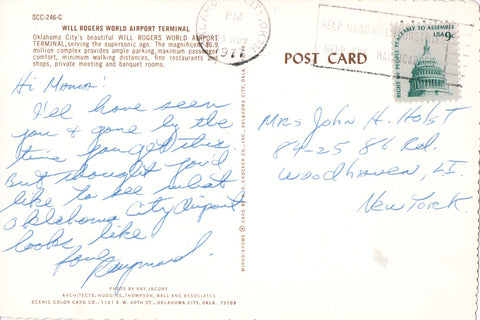 SCC-246-C
WILL ROGERS WORLD AIRPORT TERMINAL
Oklahoma City's beautiful WILL ROGERS WORLD AIRPORT
TERMINAL, serving the supersonic age. The magnificent $6.9
million complex provides ample parking, maximum passenger
comfort, minimum walking distances, fine restaurants and
shops, private meeting and banquet rooms.
Hi Mama!
I'll have seen
you & gone by the
time you get this.
But thought you'd
like to see what
Oklahoma City Airport
looks like
Love
Raymond.
PHOTO BY RAY JACOBY
ARCHITECTS, HUDGINS, THOMPSON, BALL AND ASSOCIATES
SCENIC COLOR CARD CO., 1121 S.W. 40TH ST., OKLAHOMA CITY, OKLA. 73109
OKLAHOMA CITY, OKLA.
PM
NOV
HELP GOODWILL
HELP THE
POST CARD
RIGHT OF PEOPLE PEACEABLY TO ASSEMBLE
USA 9c
Mrs John H. Holst
84-25 86 Rd.
Woodhaven, LI
New York.